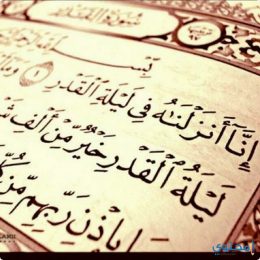 سورة القدر
بِسْمِ اللَّهِ الرَّ
إِنَّا أَنزَلْنَاهُ فِي لَيْلَةِ الْقَدْرِ ١ وَمَا أَ
لَيْلَةُ الْقَدْرِ خَيْرٌ مِّنْ أَلْفِ شَ
بِإِذْنِ رَبِّهِم مِّن كُلِّ